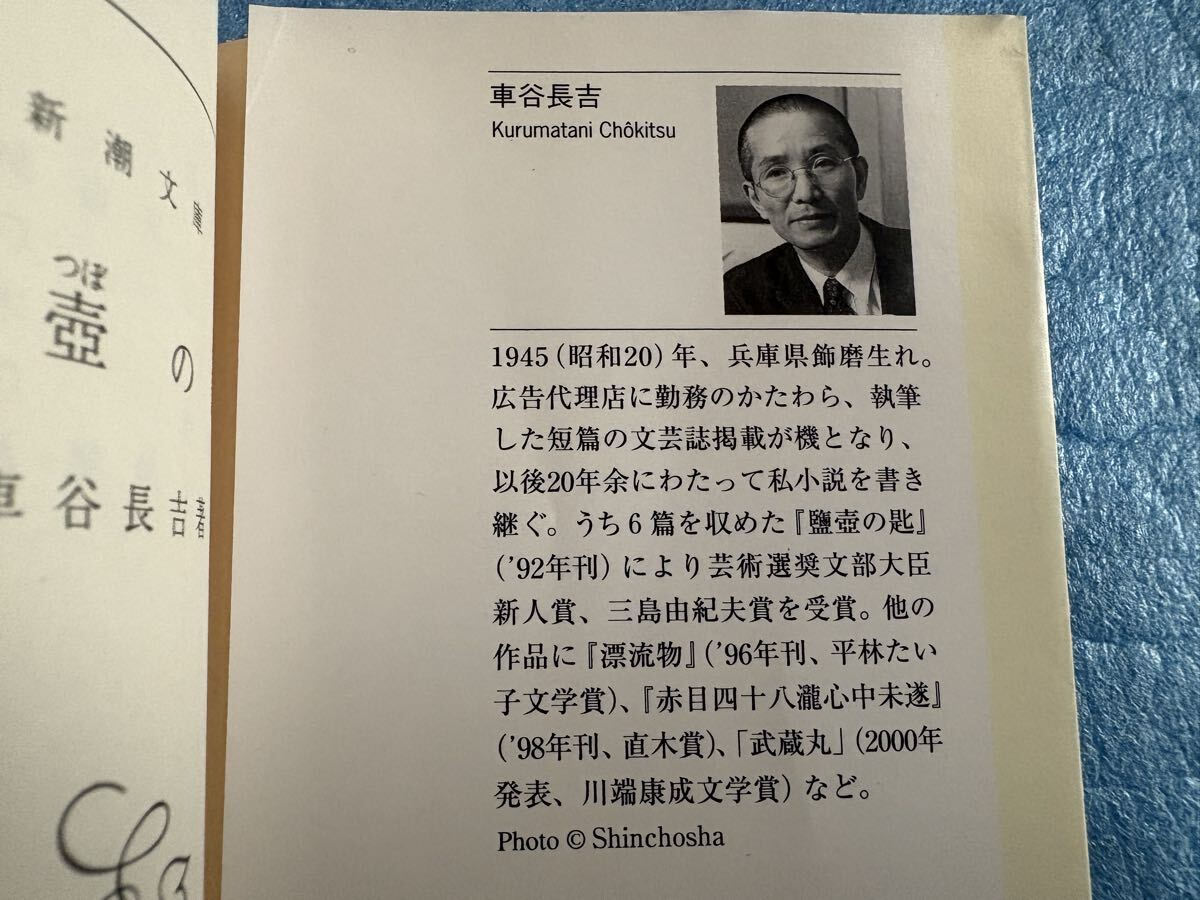 新潮文庫
つぼ
壺の
車谷長吉著
車谷長吉
Kurumatani Chôkitsu
1945（昭和20）年、兵庫県飾磨生れ。
広告代理店に勤務のかたわら、執筆
した短篇の文芸誌掲載が機となり、
以後20年余にわたって私小説を書き
継ぐ。うち6篇を収めた『鹽壺の匙』
（’92年刊）により芸術選奨文部大臣
新人賞、三島由紀夫賞を受賞。他の
作品に『漂流物』（’96年刊、平林たい
子文学賞）、『赤目四十八瀧心中未遂』
（’98年刊、直木賞）、「武蔵丸」（2000年
発表、川端康成文学賞）など。
Photo © Shinchosha